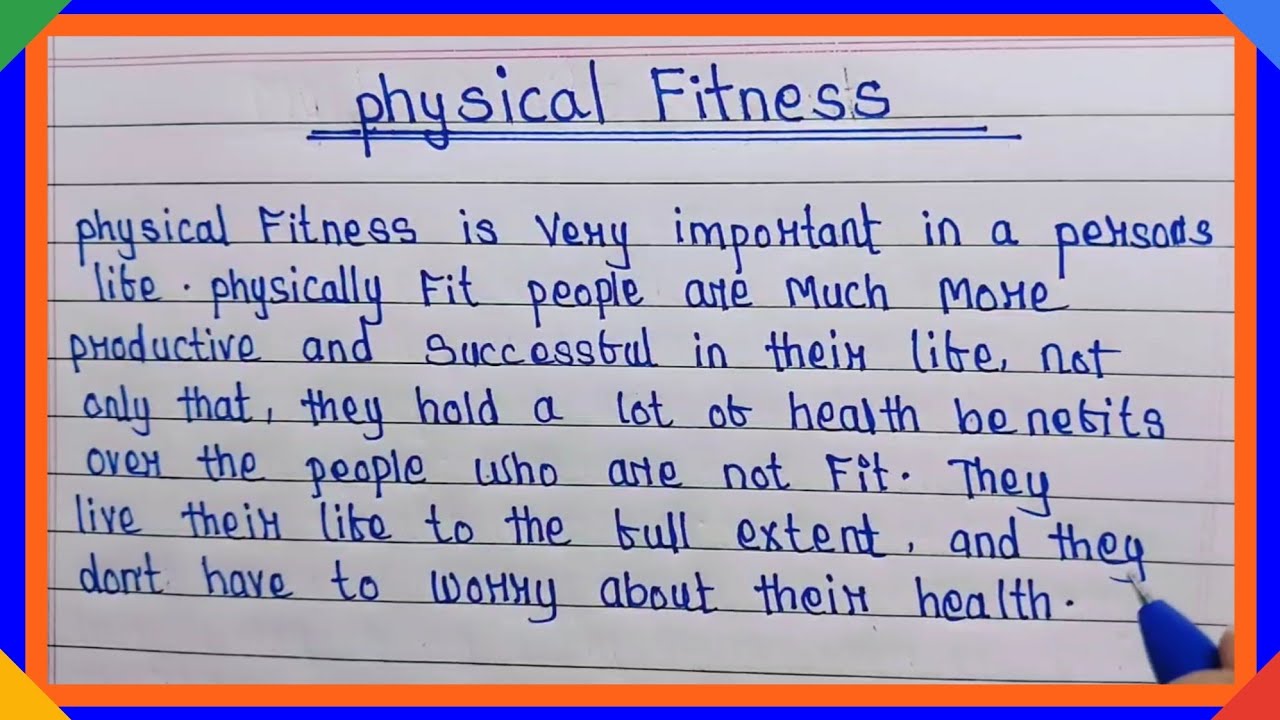 physical Fitness
physical Fitness is very important in a persons
life. physically Fit people are Much More
productive and Successful in their life, not
only that, they hold a lot of health benefits
over the people who are not Fit. They
live their life to the full extent, and they
don't have to worry about their health.